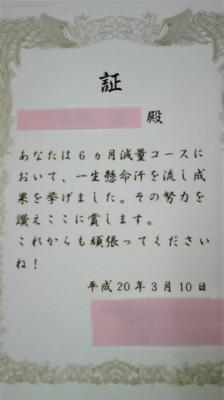 証
殿
あなたは６ヵ月減量コースに
おいて、一生懸命汗を流し成
果を挙げました。その努力を
讃えここに賞します。
これからも頑張ってください
ね！
平成20年3月10日